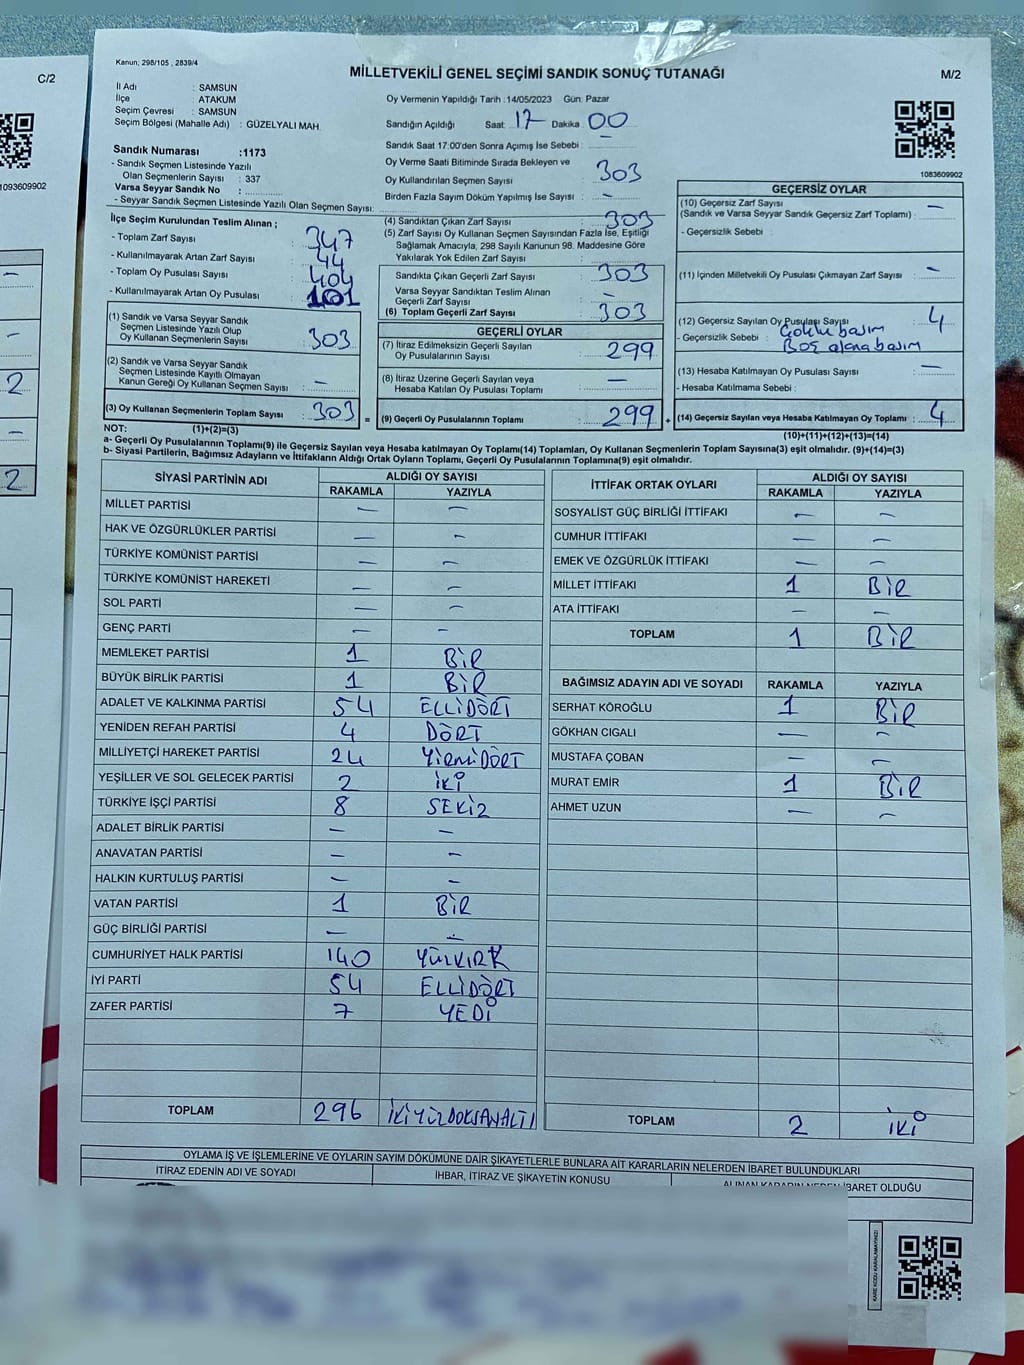 C/2
1093609902
2
2
Kanun; 298/105 , 2839/4
MİLLETVEKİLİ GENEL SEÇİMİ SANDIK SONUÇ TUTANAĞI
M/2
İl Adı : SAMSUN
İlçe : ATAKUM
Seçim Çevresi : SAMSUN
Seçim Bölgesi (Mahalle Adı) : GÜZELYALI MAH
Sandık Numarası :1173
- Sandık Seçmen Listesinde Yazılı
Olan Seçmenlerin Sayısı : 337
Varsa Seyyar Sandık No :
- Seyyar Sandık Seçmen Listesinde Yazılı Olan Seçmen Sayısı:
Oy Vermenin Yapıldığı Tarih :14/05/2023 Gün: Pazar
Sandığın Açıldığı Saat: 17 Dakika: 00
Sandık Saat 17:00'den Sonra Açımış İse Sebebi :
Oy Verme Saati Bitiminde Sırada Bekleyen ve
Oy Kullandırılan Seçmen Sayısı : 303
Birden Fazla Sayım Döküm Yapılmış İse Sayısı : -
1083609902
İlçe Seçim Kurulundan Teslim Alınan ;
- Toplam Zarf Sayısı : 347
- Kullanılmayarak Artan Zarf Sayısı : 44
- Toplam Oy Pusulası Sayısı : 404
- Kullanılmayarak Artan Oy Pusulası : 101
(1) Sandık ve Varsa Seyyar Sandık
Seçmen Listesinde Yazılı Olup
Oy Kullanan Seçmenlerin Sayısı : 303
(2) Sandık ve Varsa Seyyar Sandık
Seçmen Listesinde Kayıtlı Olmayan
Kanun Gereği Oy Kullanan Seçmen Sayısı : -
(3) Oy Kullanan Seçmenlerin Toplam Sayısı : 303 =
(4) Sandıktan Çıkan Zarf Sayısı : 303
(5) Zarf Sayısı Oy Kullanan Seçmen Sayısından Fazla İse, Eşitliği
Sağlamak Amacıyla, 298 Sayılı Kanunun 98. Maddesine Göre
Yakılarak Yok Edilen Zarf Sayısı :
Sandıkta Çıkan Geçerli Zarf Sayısı : 303
Varsa Seyyar Sandıktan Teslim Alınan
Geçerli Zarf Sayısı : -
(6) Toplam Geçerli Zarf Sayısı : 303
GEÇERLİ OYLAR
(7) İtiraz Edilmeksizin Geçerli Sayılan
Oy Pusulalarının Sayısı : 299
(8) İtiraz Üzerine Geçerli Sayılan veya
Hesaba Katılan Oy Pusulası Toplamı : -
(9) Geçerli Oy Pusulalarının Toplamı : 299 +
GEÇERSİZ OYLAR
(10) Geçersiz Zarf Sayısı
(Sandık ve Varsa Seyyar Sandık Geçersiz Zarf Toplamı) : -
- Geçersizlik Sebebi :
(11) İçinden Milletvekili Oy Pusulası Çıkmayan Zarf Sayısı : -
(12) Geçersiz Sayılan Oy Pusulası Sayısı : 4
- Geçersizlik Sebebi : Çoklu basım
Boş alana basım
(13) Hesaba Katılmayan Oy Pusulası Sayısı : -
- Hesaba Katılmama Sebebi :
(14) Geçersiz Sayılan veya Hesaba Katılmayan Oy Toplamı : 4
NOT: (1)+(2)=(3)
(10)+(11)+(12)+(13)=(14)
a- Geçerli Oy Pusulalarının Toplamı(9) ile Geçersiz Sayılan veya Hesaba katılmayan Oy Toplamı(14) Toplamları, Oy Kullanan Seçmenlerin Toplam Sayısına(3) eşit olmalıdır. (9)+(14)=(3)
b- Siyasi Partilerin, Bağımsız Adayların ve İttifakların Aldığı Ortak Oyların Toplamı, Geçerli Oy Pusulalarının Toplamına(9) eşit olmalıdır.
SİYASİ PARTİNİN ADI ALDIĞI OY SAYISI
RAKAMLA YAZIYLA
MİLLET PARTİSİ - -
HAK VE ÖZGÜRLÜKLER PARTİSİ - -
TÜRKİYE KOMÜNİST PARTİSİ - -
TÜRKİYE KOMÜNİST HAREKETİ - -
SOL PARTİ - -
GENÇ PARTİ - -
MEMLEKET PARTİSİ 1 BİR
BÜYÜK BİRLİK PARTİSİ 1 BİR
ADALET VE KALKINMA PARTİSİ 54 ELLİDÖRT
YENİDEN REFAH PARTİSİ 4 DÖRT
MİLLİYETÇİ HAREKET PARTİSİ 24 YİRMİDÖRT
YEŞİLLER VE SOL GELECEK PARTİSİ 2 İKİ
TÜRKİYE İŞÇİ PARTİSİ 8 SEKİZ
ADALET BİRLİK PARTİSİ - -
ANAVATAN PARTİSİ - -
HALKIN KURTULUŞ PARTİSİ - -
VATAN PARTİSİ 1 BİR
GÜÇ BİRLİĞİ PARTİSİ - -
CUMHURİYET HALK PARTİSİ 140 YÜZKIRK
İYİ PARTİ 54 ELLİDÖRT
ZAFER PARTİSİ 7 YEDİ
TOPLAM 296 İKİYÜZDOKSANALTI
İTTİFAK ORTAK OYLARI ALDIĞI OY SAYISI
RAKAMLA YAZIYLA
SOSYALİST GÜÇ BİRLİĞİ İTTİFAKI - -
CUMHUR İTTİFAKI - -
EMEK VE ÖZGÜRLÜK İTTİFAKI - -
MİLLET İTTİFAKI 1 BİR
ATA İTTİFAKI - -
TOPLAM 1 BİR
BAĞIMSIZ ADAYIN ADI VE SOYADI RAKAMLA YAZIYLA
SERHAT KÖROĞLU 1 BİR
GÖKHAN CIGALI - -
MUSTAFA ÇOBAN - -
MURAT EMİR 1 BİR
AHMET UZUN - -
TOPLAM 2 İKİ
OYLAMA İŞ VE İŞLEMLERİNE VE OYLARIN SAYIM DÖKÜMÜNE DAİR ŞİKAYETLERLE BUNLARA AİT KARARLARIN NELERDEN İBARET BULUNDUKLARI
İTİRAZ EDENİN ADI VE SOYADI İHBAR, İTİRAZ VE ŞİKAYETİN KONUSU ALINAN KARARIN NEDEN İBARET OLDUĞU
KARE KODU KARALAMAYINIZ!